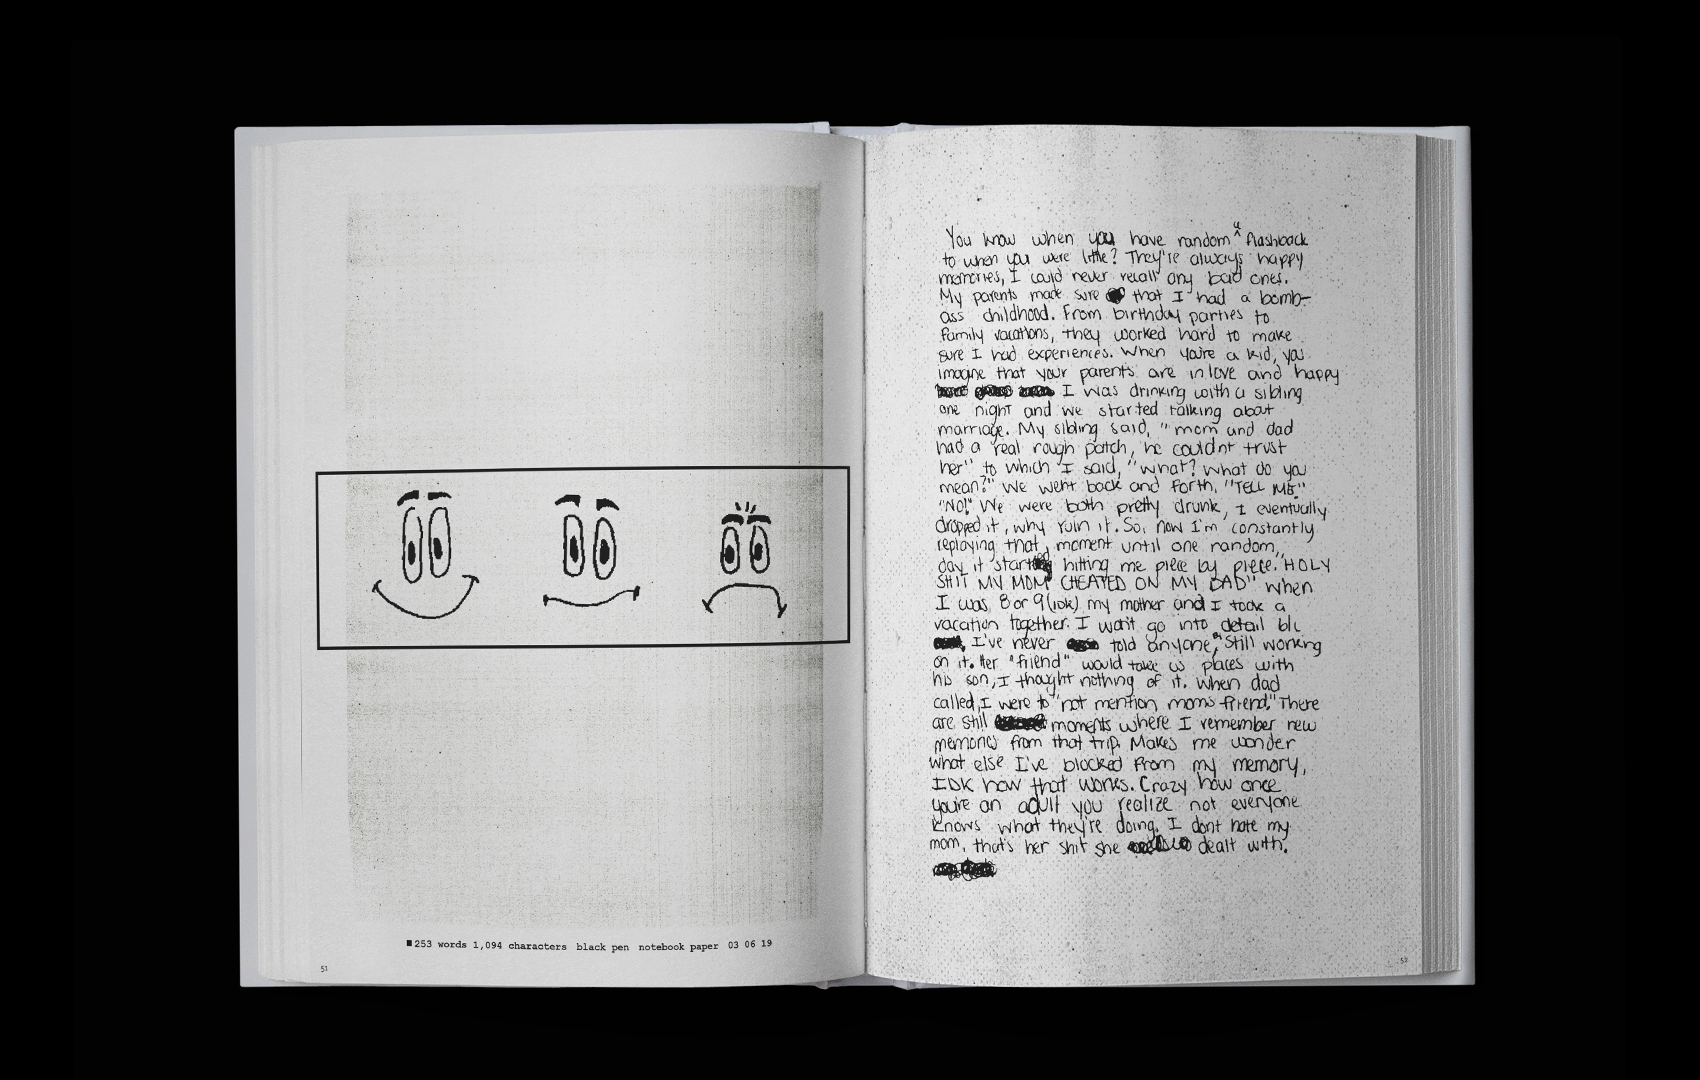 ■253 words 1,094 characters black pen notebook paper 03 06 19
51
You know when you have random a flashback
to when you were little? They're always happy
memories, I could never recall any bad ones.
My parents made sure that I had a bomb-
ass childhood. From birthday parties to
family vacations, they worked hard to make
sure I had experiences. When you're a kid, you
imagine that your parents are in love and happy
I was drinking with a sibling
one night and we started talking about
marriage. My sibling said, "mom and dad
had a real rough patch, he couldnt trust
her" to which I said, "what? what do you
mean?" We went back and forth. "TELL ME."
"NO!" We were both pretty drunk, I eventually
dropped it, why ruin it. So, now I'm constantly
replaying that moment until one random,
day it started hitting me piece by piece. "HOLY
SHIT MY MOM CHEATED ON MY DAD" when
I was 8 or 9 (idk) my mother and I took a
vacation together. I won't go into detail b/c
I've never told anyone, Still working
on it. Her "friend" would take us places with
his son, I thought nothing of it. When dad
called, I were to "not mention moms friend." There
are still moments where I remember new
memories from that trip. Makes me wonder
what else I've blocked from my memory,
IDK how that works. Crazy how once
you're an adult you realize not everyone
knows what they're doing. I dont hate my
mom, that's her shit she dealt with.
52